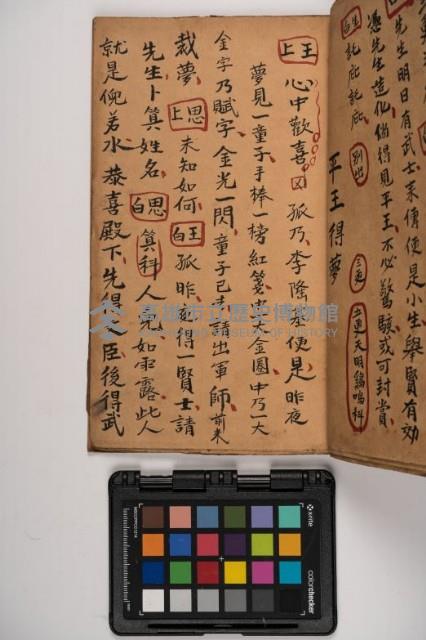 白生
託庇託庇
別出
平王得夢
憑先生造化倘得見平王不必驚駭或可封賞
先生明日有武士來傳便是小生舉賢有効
五更天明鷄鳴科
上王
心中歡喜
孤乃李隆基便是昨夜
夢見一童子手棒一榜紅箋書大金圓中乃一大
金字乃賦字金光一閃童子已去請出軍師前來
裁夢
上思
未知如何
白王
孤昨夜得一賢士請
先生卜算姓名
白思
算科
人先如雨露此人
就是倪若水恭喜殿下先得臣後得武
高雄市立歷史博物館
KAOHSIUNG MUSEUM OF HISTORY
x-rite
colorchecker